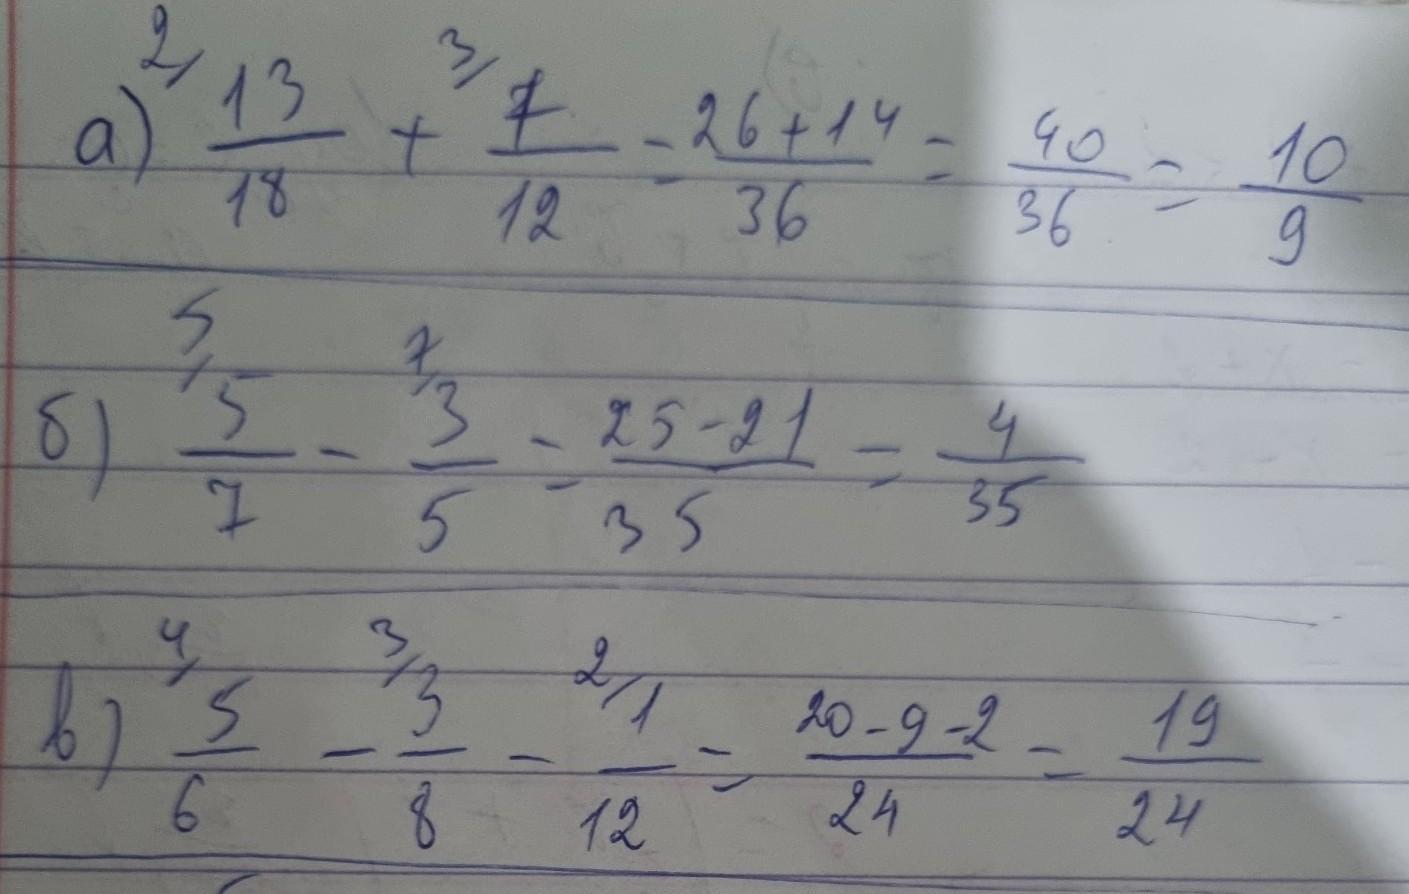 а) ²/ 13/18 + ³/ 7/12 = 26+14/36 = 40/36 = 10/9
б) ⁵/ 5/7 - ⁷/ 3/5 = 25-21/35 = 4/35
в) ⁴/ 5/6 - ³/ 3/8 - ²/ 1/12 = 20-9-2/24 = 19/24